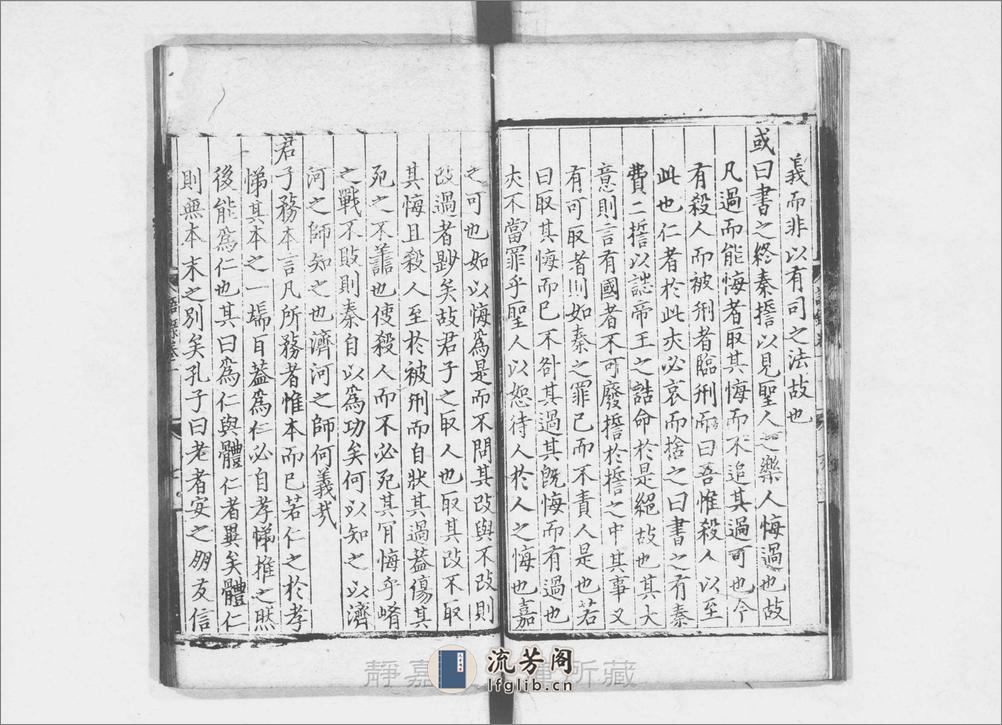 義而非以有司之法故也
或曰書之終秦誓以見聖人之樂人悔過也故
凡過而能悔者取其悔而不追其過可也今
有殺人而被刑者臨刑而曰吾惟殺人以至
此也仁者於此夾必哀而捨之曰書之有秦
費二誓以誌帝王之誥命於是絕故也其大
意則言有國者不可廢誓於誓之中其事又
有可取者則如秦之罪已而不責人是也若
曰取其悔而已不欲其過其旣悔而有過也
夾不當罪乎聖人以恕待人於人之悔也嘉
之可也如以悔爲是而不問其改與不改則
改過者尠矣故君子之取人也取其改不取
其悔且殺人至於被刑而自狀其過蓋傷其
死之不善也使殺人而不必死其肎悔乎崤
之戰不敗則秦自以爲功矣何以知之以濟
河之師知之也濟河之師何義㢤
君子務本言凡所務者惟本而已若仁之於孝
悌其本之一端耳蓋爲仁必自孝悌推之然
後能爲仁也其曰爲仁與體仁者異矣體仁
則無本末之別矣孔子曰老者安之朋友信
語錄卷一
静嘉
所藏
流芳阁
lfglib.cn